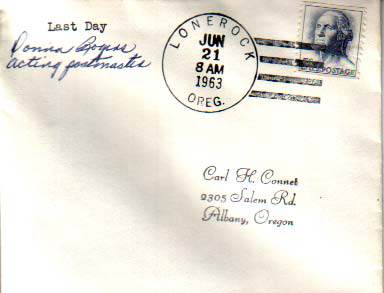 Last Day
Donna Rogers
acting postmaster
LONEROCK
JUN
21
8 AM
1963
OREG.
POSTAGE
Carl H. Connet
2305 Salem Rd.
Albany, Oregon